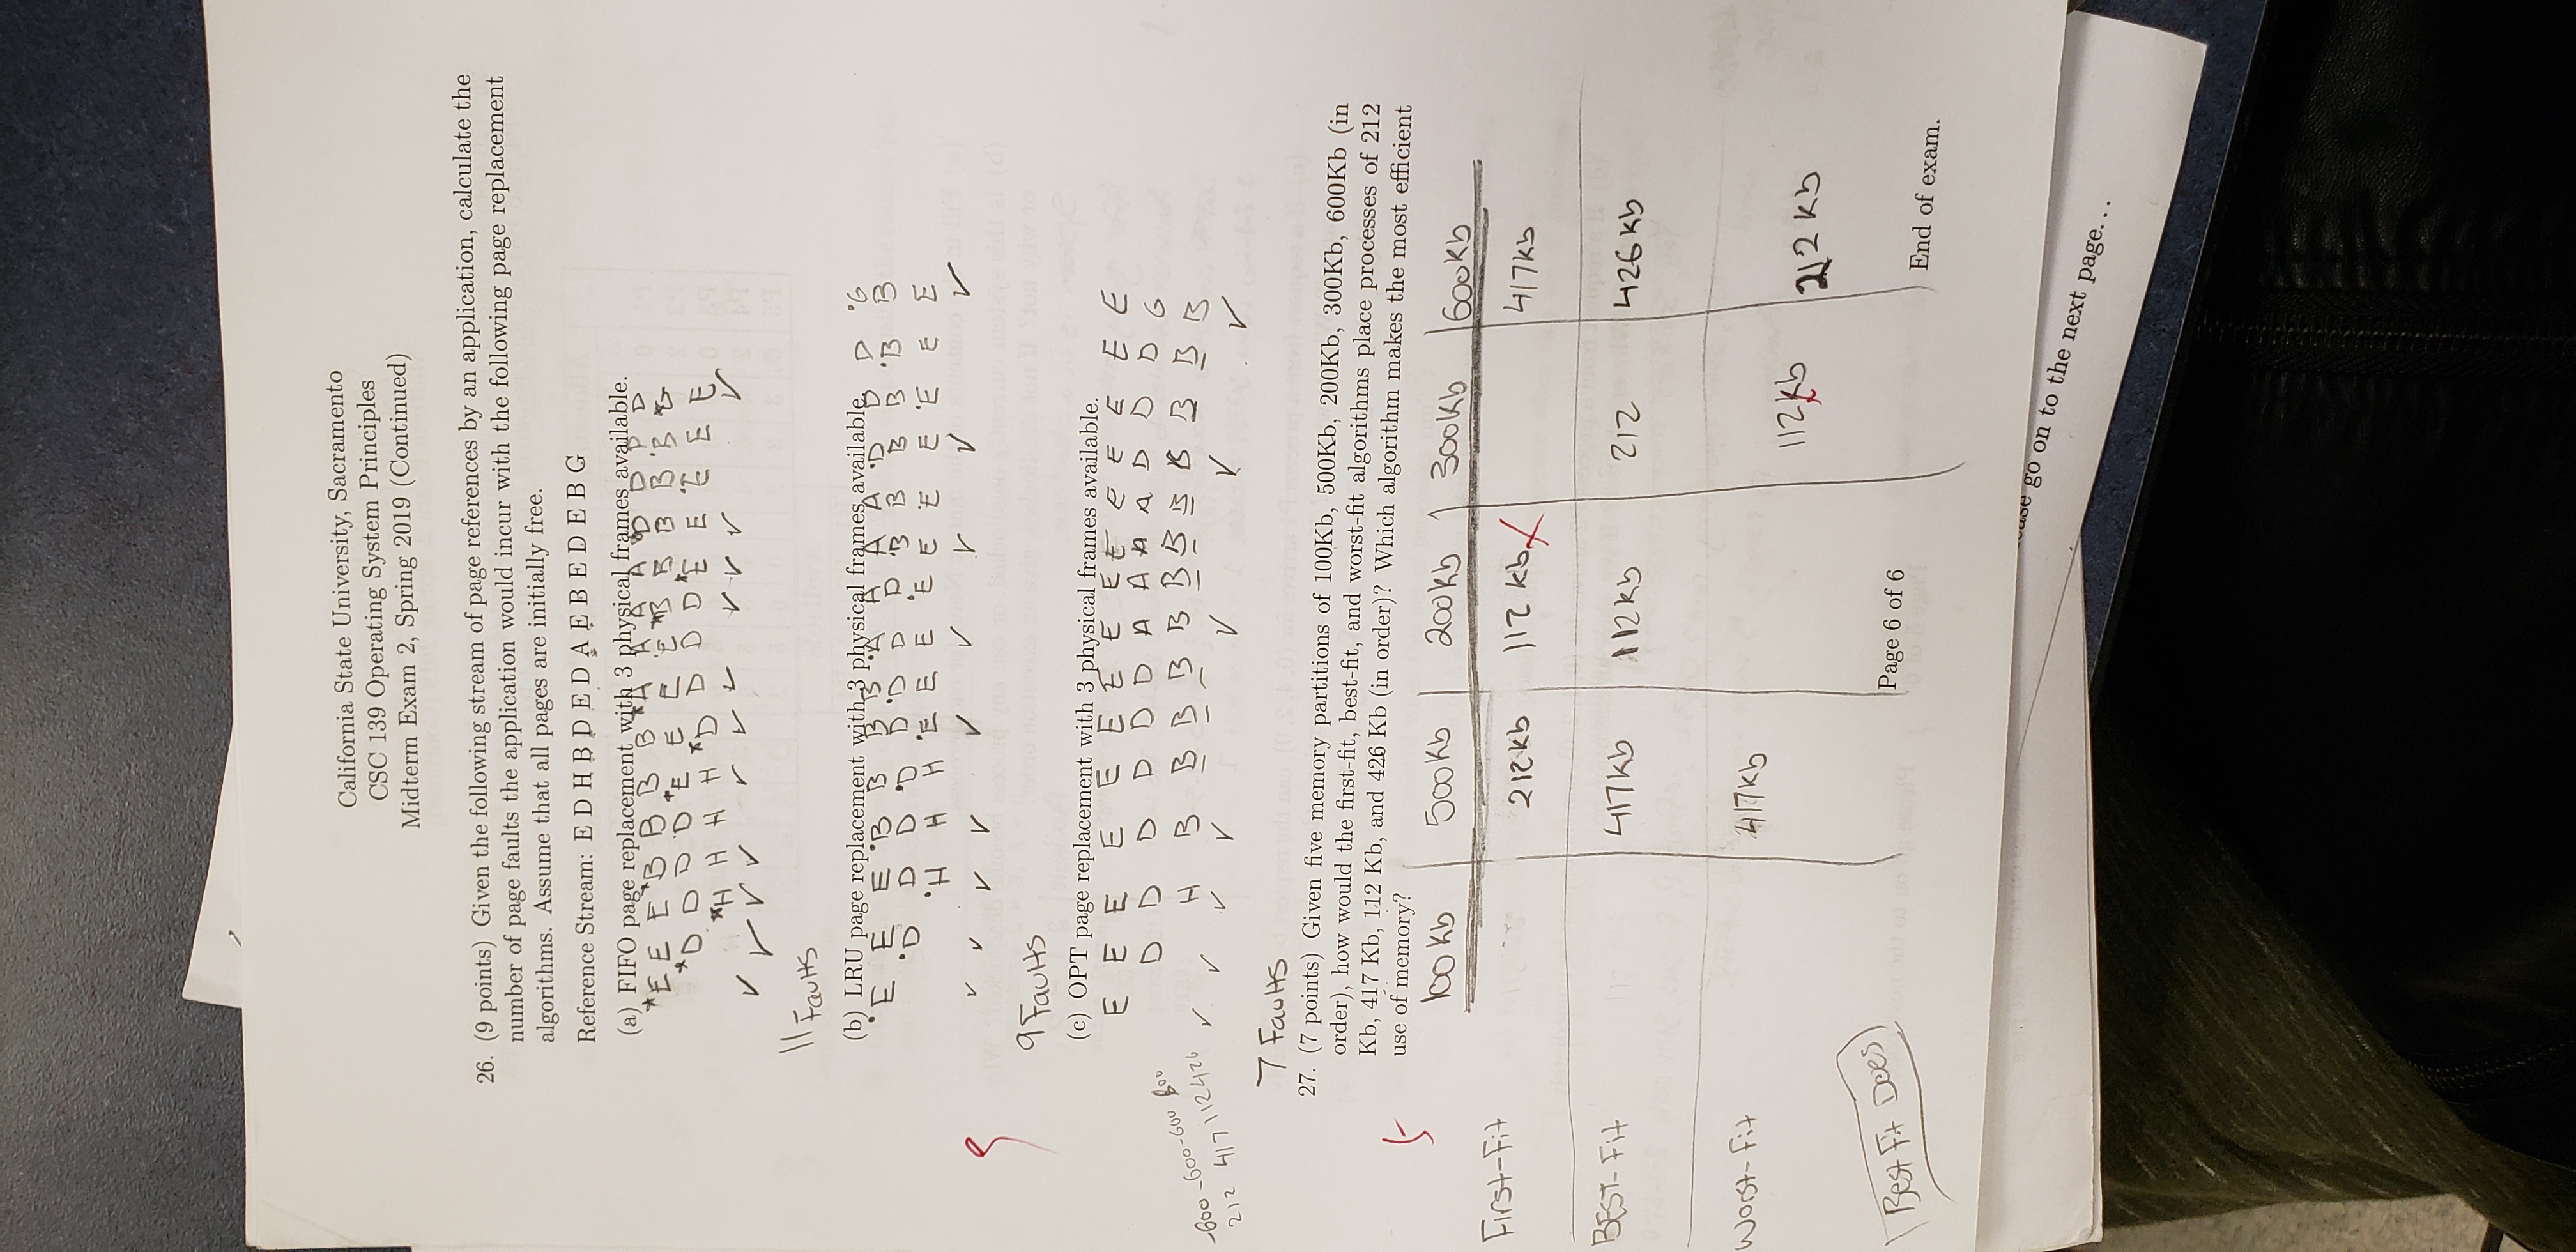 California State University, Sacramento
CSC 139 Operating System Principles
Midterm Exam 2, Spring 2019 (Continued)
26. (9 points) Given the following stream of page references by an application, calculate the
number of page faults the application would incur with the following page replacement
algorithms. Assume that all pages are initially free.
Reference Stream: E D H B D E D A E B E D E B G
(a) FIFO page replacement with 3 physical frames available.
*E E E *B B B B *A A A A D D D D
*D D D D *E E E E *B B B B B G
*H H H H *D D D D *E E E E E
✓ ✓ ✓ ✓ ✓ ✓ ✓ ✓ ✓ ✓ ✓
11 Faults
(b) LRU page replacement with 3 physical frames available.
E E E B B B B A A A A D D D G
D D D D D D D D B B B B B B
H H H E E E E E E E E E E
✓ ✓ ✓ ✓ ✓ ✓ ✓ ✓ ✓
9
9 Faults
(c) OPT page replacement with 3 physical frames available.
E E E E E E E E E E E E E E E
D D D D D D A A A A D D D G
H B B B B B B B B B B B B
✓ ✓ ✓ ✓ ✓ ✓ ✓
-600 -600-600 600
212 417 112 426
7 Faults
27. (7 points) Given five memory partitions of 100Kb, 500Kb, 200Kb, 300Kb, 600Kb (in
order), how would the first-fit, best-fit, and worst-fit algorithms place processes of 212
Kb, 417 Kb, 112 Kb, and 426 Kb (in order)? Which algorithm makes the most efficient
use of memory?
5
100 Kb 500Kb 200Kb 300Kb 600Kb
First-Fit 212Kb 112 Kb 417Kb
BEST-Fit 417Kb 112Kb 212 426Kb
Worst-Fit 417Kb 112Kb 212 Kb
Best Fit Does
Page 6 of 6
End of exam.
go on to the next page...